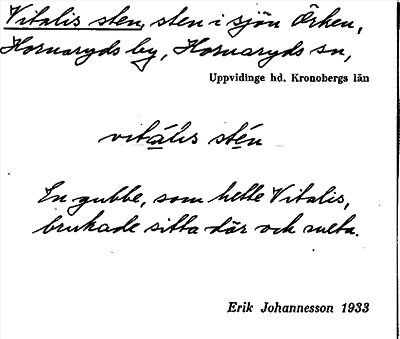 Vitalis sten, sten i sjön Örken,
Hornaryds by, Hornaryds sn,
Uppvidinge hd. Kronobergs län
vitális stén
En gubbe, som hette Vitalis,
brukade sitta där och meta.
Erik Johannesson 1933